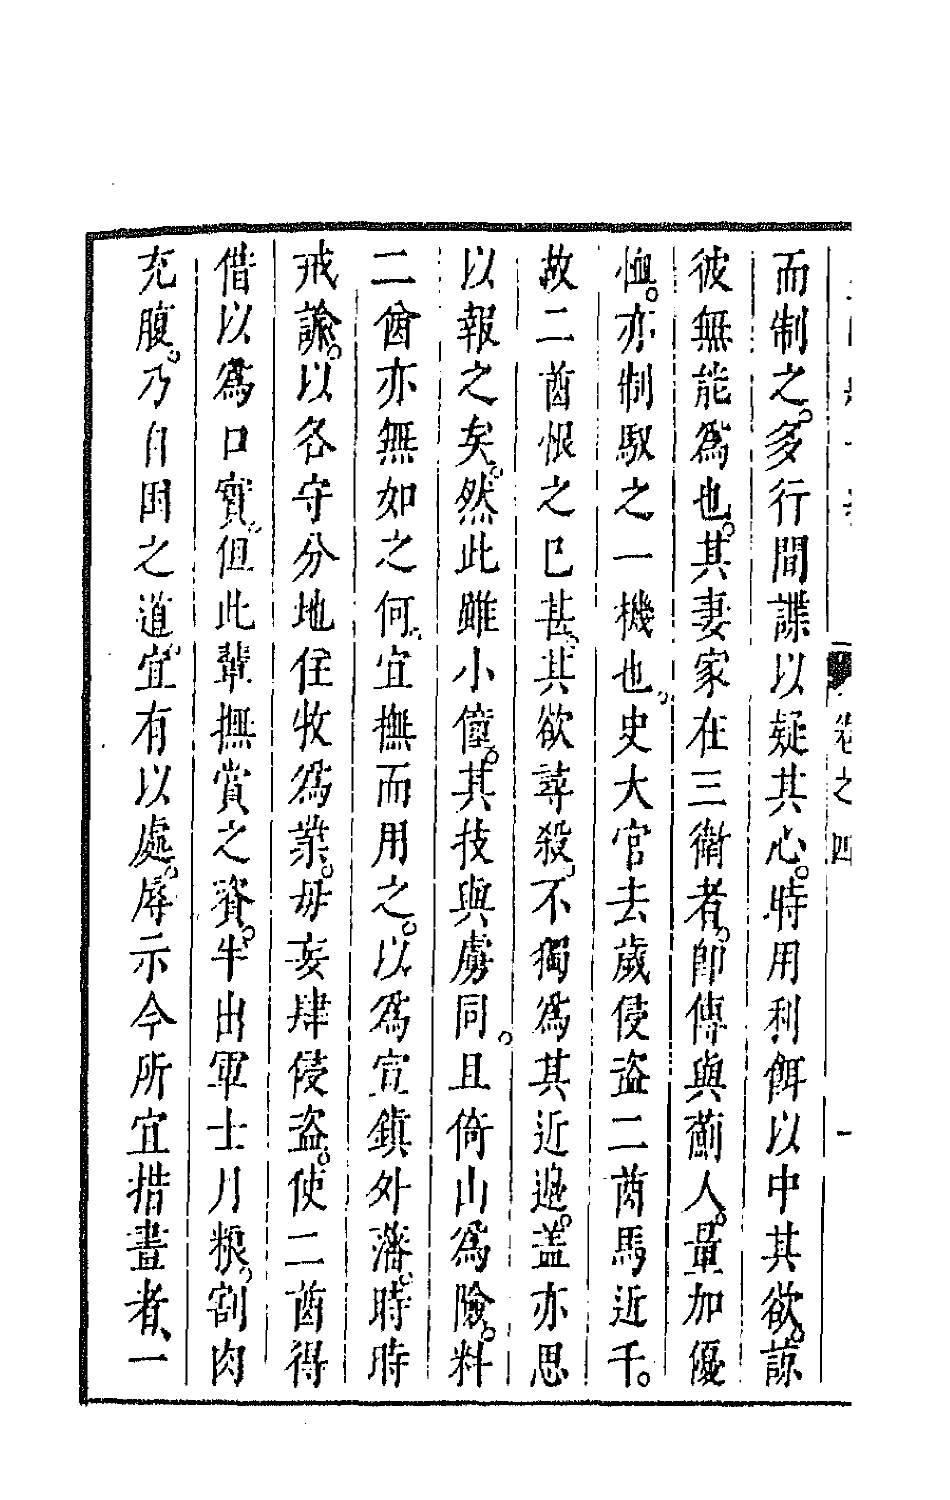 卷之四 一
而制之。多行間諜以疑其心。時用利餌以中其欲。諒
彼無能爲也。其妻家在三衛者。卽傳與薊人。量加優
恤。亦制馭之一機也。史大官去歲侵盗二酋馬近千。
故二酋恨之已甚。其欲尋殺。不獨爲其近邊。盖亦思
以報之矣。然此雖小僮。其技與虜同。且倚山爲險。料
二酋亦無如之何。宜撫而用之。以爲宣鎮外藩。時時
戒諭。以各守分地住牧爲業。毋妄肆侵盗。使二酋得
借以爲口實。但此輩撫賞之資。半出軍士月粮。割肉
充腹。乃自困之道。宜有以處。辱示今所宜措畫者、一